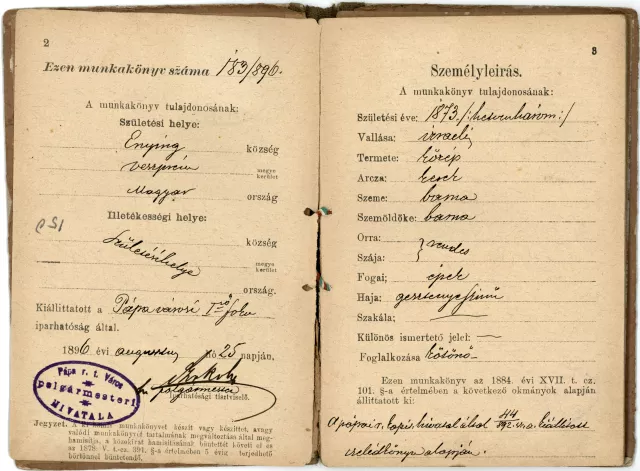 2
Ezen munkakönyv száma 183/896.
A munkakönyv tulajdonosának:
Születési helye:
Enying község
Veszprém megye kerület
Magyar ország
Illetékességi helye:
Születéshelye község
megye kerület
ország.
Kiállíttatott a Pápa városi I-ső foku
iparhatóság által.
1896 évi augusztus hó 25 napján.
polgármester
iparhatósági tisztviselő.
Pápa r. t. Város
polgármesteri
HIVATALA
Jegyzet. A ki hamis munkakönyvet készit vagy készittet, avagy
valódi munkakönyvet tartalmának megváltoztatása által meg-
hamisitja, a közokirat hamisitásának büntettét követi el és
az 1878. V. t.-cz. 391. §-a értelmében 5 évig terjedhető
börtönnel büntetendő.
150
3
Személyleirás.
A munkakönyv tulajdonosának:
Születési éve: 1873 /: hetvenhárom :/
Vallása: izraeli
Termete: közép
Arcza: kerek
Szeme: barna
Szemöldöke: barna
Orra:
Szája: } rendes
Fogai: épek
Haja: gesztenyeszinü
Szakála: —
Különös ismertető jelei: —
Foglalkozása kötőnő
Ezen munkakönyv az 1884. évi XVII. t. cz.
101. §-a értelmében a következő okmányok alapján
állíttatott ki:
A pápai r. kapit. hivatal által kiállitott
cselédkönyv alapján.